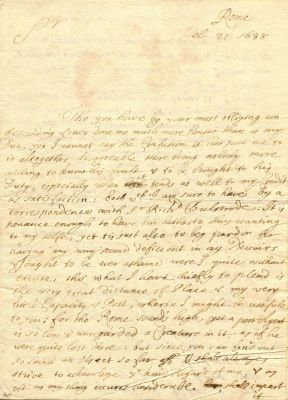 Rome
Feb. 21 1688
Sr
Tho you have by your most obliging
Letter done me much more honour than is my
Due, yet I cannot say the Confusion it has put me to
is altogether disagreable, there being nobody more
willing to know his fault, & to be brought to his
Duty, especially when tends as well to my Credit
as satisfaction; both I am sure to have by a
correspondence with Sr Rich: Bulstrode. It is
penance enough to have so long been thus wanting
to my selfe, yet tis just also to beg pardon for
having any way seemd defficient in my Devoirs
I ought to be ever ashamed were I quite without
Excuse; that what I have chiefly to plead is
the very great distance of Place & my very
little Capacity & Post, wherein I might be usefull
to you; for tho Rome sound high, yet a poor Agent
is so low & unregarded a Creature in it, as if he
were quite lost here: but since you can find out
so mean an object so far off I shall always
strive to acknowledge yr kind Regard of me, & as
oft as any thing occurs considerable, shall impart
it